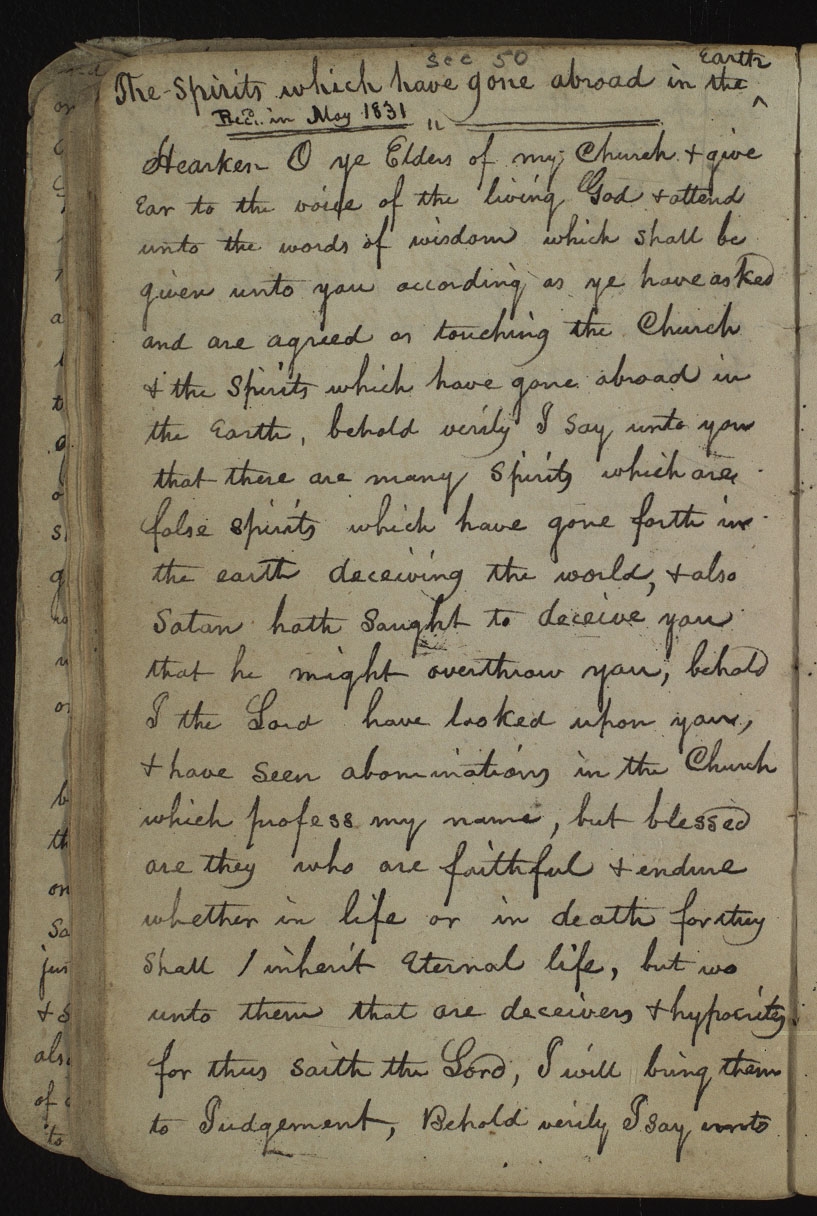 sec 50
The Spirits which have gone abroad in the ^ Earth
Recd. in May 1831 "
Hearken O ye Elders of my Church & give
Ear to the voice of the living God & attend
unto the words of wisdom which shall be
given unto you according as ye have asked
and are agreed as touching the Church
& the Spirits which have gone abroad in
the Earth, behold verily I Say unto you
that there are many Spirits which are
false spirits which have gone forth in
the earth deceiving the world, & also
Satan hath Saught to deceive you
that he might overthrow you, behold
I the Lord have looked upon you,
& have Seen abominations in the Church
which profess my name, but blessed
are they who are faithful & endure
whether in life or in death for they
Shall / inherit Eternal life, but wo
unto them that are deceivers & hypocrites
for thus saith the Lord, I will bring them
to Judgement, Behold verily I say unto
on
th
on
Sa
jus
& s
als
of
to